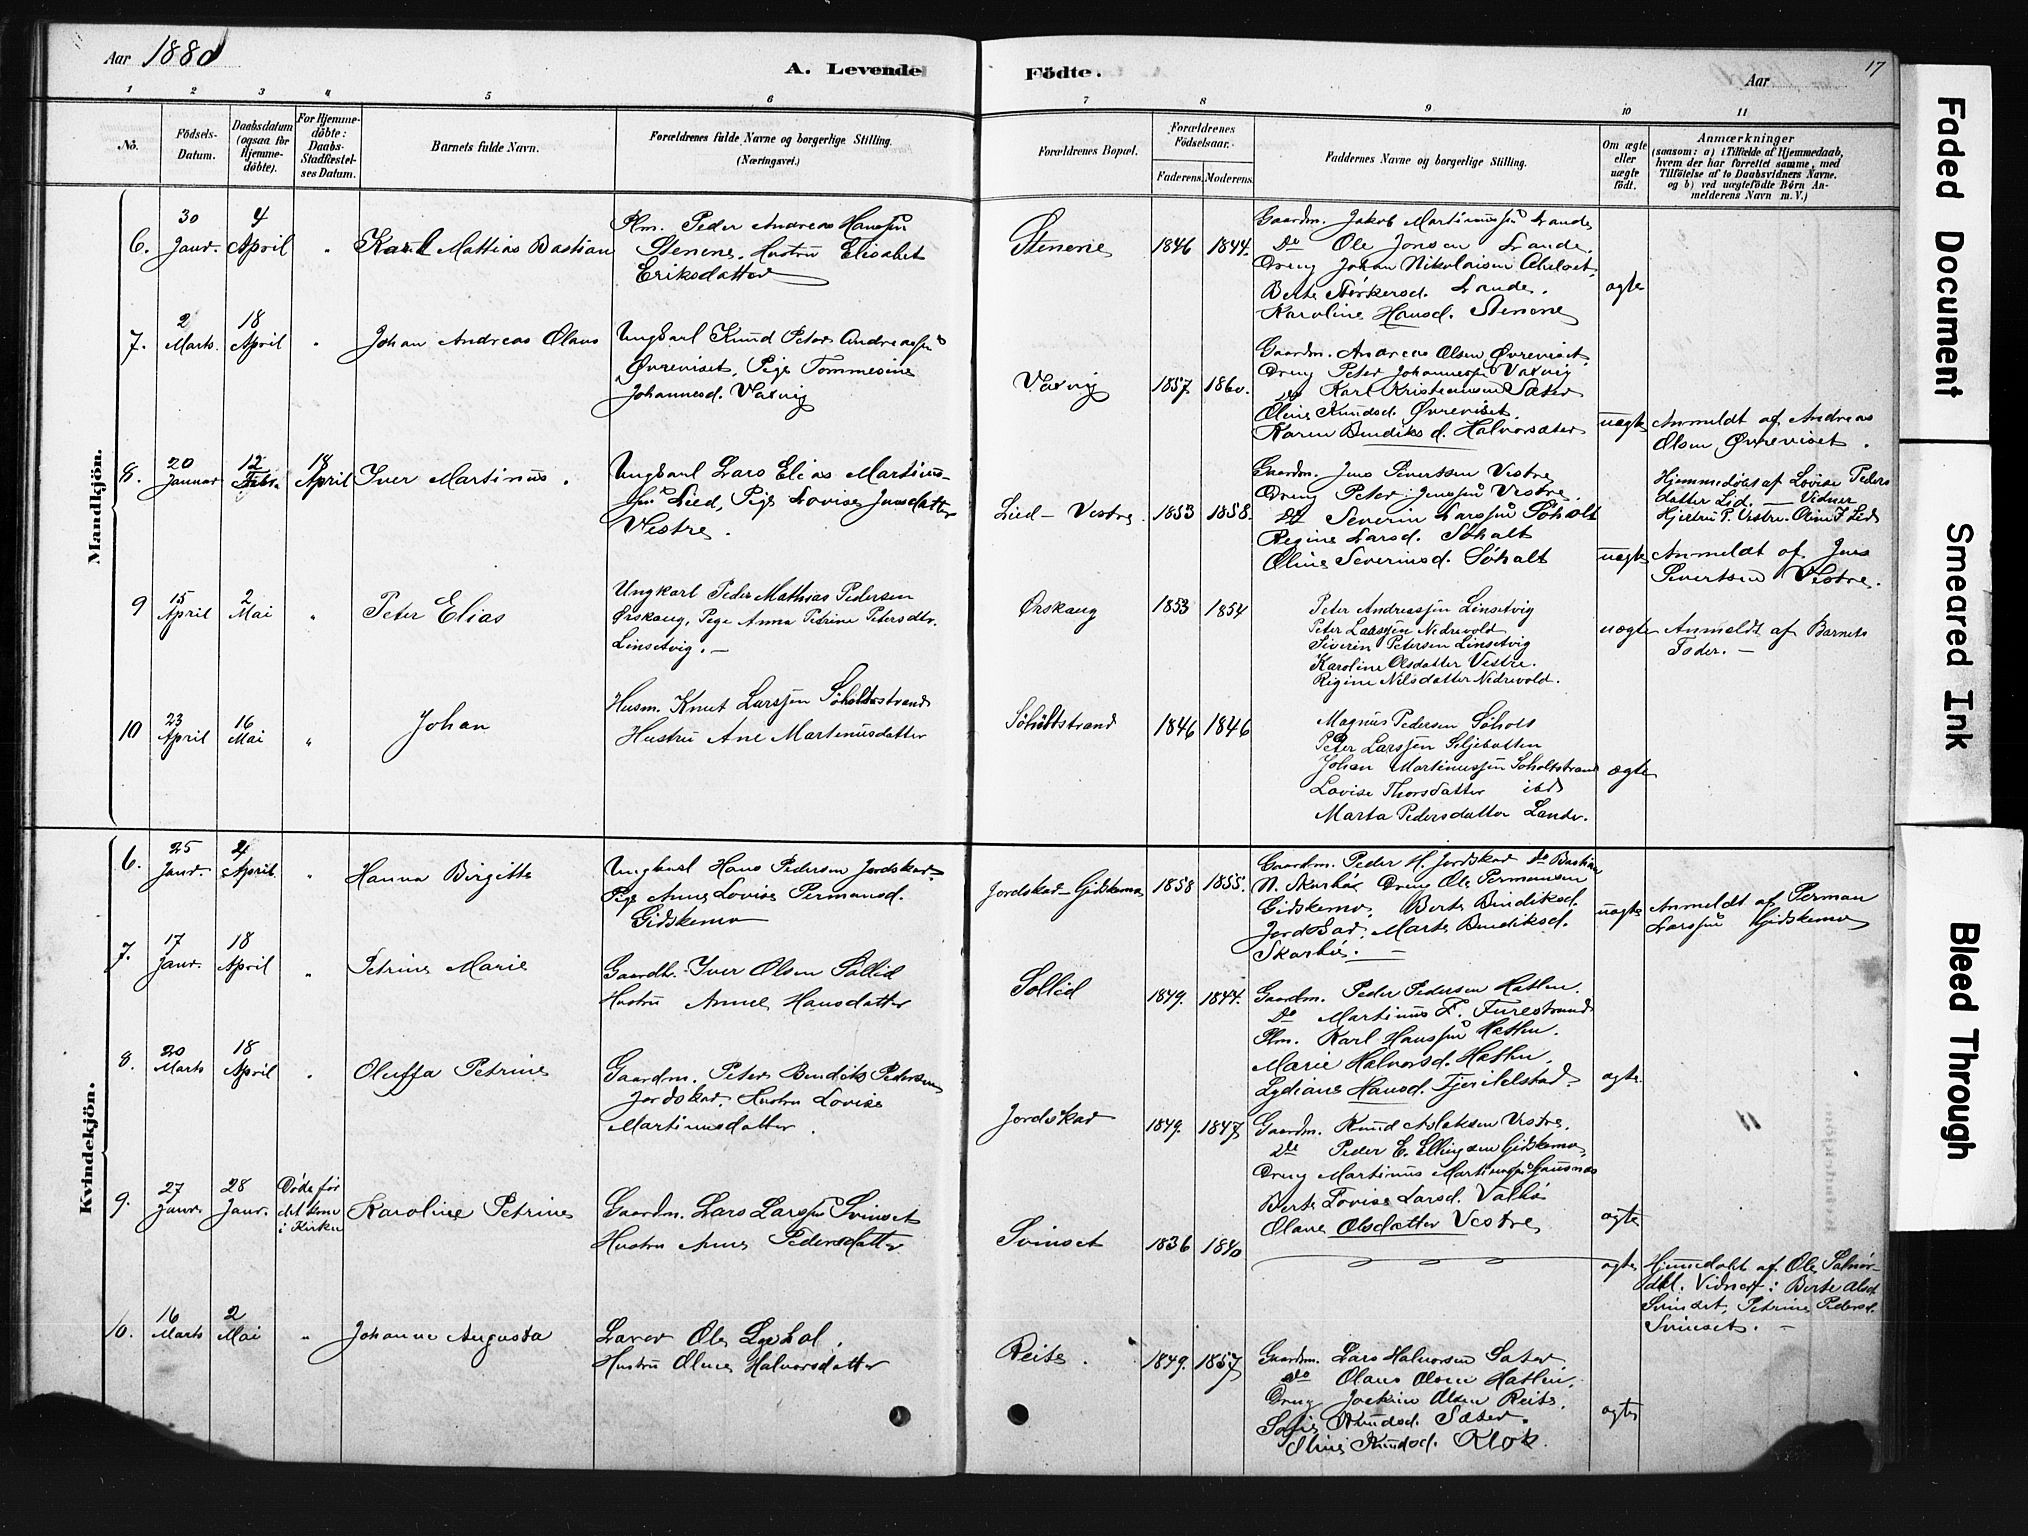 Aar 1880
A. Levende
Födte.
Aar
17
1 2 3 4 5 6 7 8 9 10 11
No.
Födsels-
Datum.
Daabsdatum
(ogsaa for
Hjemme-
döbte).
For Hjemme-
döbte:
Daabs-
Stadfæstel-
ses Datum.
Barnets fulde Navn.
Forældrenes fulde Navne og borgerlige Stilling.
(Næringsvei.)
Forældrenes Bopæl.
Forældrenes
Födselsaar.
Faderens. Moderens.
Faddernes Navne og borgerlige Stilling.
Om ægte
eller
uægte
födt.
Anmærkninger
(saasom: a) i Tilfælde af Hjemmedaab,
hvem der har forrettet samme, med
Tilföielse af to Daabsvidners Navne,
og b) ved uægtefödte Börn An-
melderens Navn m. V.)
Mandkjön.
6.
30
Janr.
4
April
"
Karl Mattias Bastian
Plm. Peder Andreas Hanssøn
Stenene. Hustru Elisabet
Eriksdatter
Stenene
1846 1844.
Gaardm. Jakob Martinussøn Lande
Do Ole Jonsen Lande.
Dreng Johan Nikolaisen
Berte Størkersd. Lande.
Karoline Hansd. Stenene
ægte
7.
2
Marts.
18
April
"
Johan Andreas Olaus
Ungkarl Knud Peter Andreassøn
Øvreviset, Pige Tommesine
Johannesd. Vaxvig
Vaxvig
1857. 1860.
Gaardm. Andreas Olsen Øvreviset.
Dreng Peter Johannessøn Vaxvig
Do Karl Kristiansen Sæter
Oline Knudsd. Øvreviset.
Karen Bendiksd. Halvorsæter
uægte
Anmeldt af Andreas
Olsen Øvreviset.
8.
20
Januar
12
Febr.
18
April
Iver Martinus.
Ungkarl Lars Elias Martinus-
søn Lied, Pige Lovise Jensdatter
Vestre.
Lied - Vestre.
1853 1858.
Gaardm. Jens Sivertsen Vestre
Dreng Peter Jenssøn Vestre.
Do Severin Larssøn Søholt
Regine Larsd. Søholt
Oline Severinsd. Søholt
uægte
Hjemmedøbt af Lovise Peders
datter Lid — Vidner
Hjertru P. Vestre. Oline J. Lid
Anmeldt af Jens
Sivertsen Vestre.
9
15
April
2
Mai
"
Peter Elias
Ungkarl Peder Mathias Pedersen
Ørskaug, Pige Anna Petrine Petersdtr.
Linsetvig. —
Ørskaug
1853 1854
Peter Andreassen Linsetvig
Peter Larssen Nedrevold
Severin Petersen Linsetvig
Karoline Olsdatter Vestre.
Regine Nilsdatter Nedrevold.
uægte
Anmeldt af Barnets
Fader. —
10
23
April
16
Mai
"
Johan
Husm. Knut Larssen Søholtstrand
Hustru Ane Martinusdatter
Søholtstrand
1846 1846
Magnus Pedersen Søholt
Peter Larssen Siljebotten
Johan Martinussen Søholtstrand
Lovise Thorsdatter ibd
Marta Pedersdatter Lande.
ægte
Kvindekjön.
6.
25
Janr.
4
April.
"
Hanna Birgitte
Ungkarl Hans Pedersen Jordskar.
Pige Anne Lovise Permansd.
Gidskemo
Jordskar - Gidskemo
1858 1855.
Gaardm. Peder H. Jordskar Do Bastian
N. Skarbø Dreng Ole Permansen
Gidskemo. Berte Bendiksd.
Jordskar. Marte Bendiksd.
Skarbø. —
uægte
Anmeldt af Perman
Larssøn Gidskemo
7.
17
Janr.
18
April
"
Petrine Marie
Gaardb. Iver Olsen Sollid
Hustru Anne Hansdatter
Sollid
1849. 1844.
Gaardm. Peder Pedersen Hatlen.
Do Martinus F. Furestrand
Plm. Karl Hanssøn Hatlen.
Marie Halvorsd. Hatlen.
Lydiane Hansd. Tjerilelstad.
ægte.
8.
20
Marts
18
April
"
Oluffa Petrine
Gaardm. Peter Bendik Pedersen
Jordskar. Hustru Lovise
Martinusdatter.
Jordskar
1849. 1847
Gaardm. Knud Aslaksen Vestre.
Do Peder E. Ellingsen Gidskemo.
Dreng Martinus Martinussøn
Berte Lovise Larsd. Valbø
Olave Olsdatter Vestre
ægte
9.
27
Janr.
28
Janr.
Døde før
det kom
i Kirken
Karoline Petrine
Gaardm. Lars Larssøn Svinset
Hustru Anne Pedersdatter
Svinset
1836 1840
ægte
Hjemmedøbt af Ole Solnør-
dal. Vidner: Berte Olsd
Svinset, Petrine Pedersd.
Svinset. —
10.
16
Marts
2
Mai
"
Johanne Augusta
Lærer Ole
Hustru Oline Halvorsdatter
Reite.
1849. 1857
Gaardm. Lars Halvorsen Sæter
Do Olaus Olsen Hatlen.
Dreng Joakim Olsen Reite.
Sofie Knudsd. Sæter.
Oline Knudsd. Klok.
ægte
Faded Document
Smeared Ink
Bleed Through